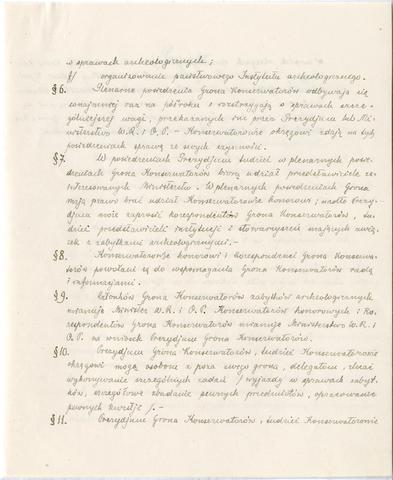 w sprawach archeologicznych;
g/ organizowanie państwowego Instytutu archeologicznego.
§ 6. Plenarne posiedzenia Grona Konserwatorów odbywają się
conajmniej raz na półroku i rozstrzygają o sprawach szcze-
gólniejszej wagi, przekazanych im przez Prezydjum lub Mi-
nisterstwo W.R. i O.P. – Konserwatorowie okręgowi zdają na tych
posiedzeniach sprawę ze swych czynności.
§ 7. W posiedzeniach Prezydjum tudzież w plenarnych posie-
dzeniach Grona Konserwatorów biorą udział przedstawiciele za-
interesowanych Ministerstw. W plenarnych posiedzeniach Grona
mają prawo brać udział Konserwatorowie honorowi; nadto Prezy-
djum może zaprosić korespondentów Grona Konserwatorów, tu-
dzież przedstawicieli instytucji i stowarzyszeń mających zwią-
zek z zabytkami archeologicznemi.–
§ 8. Konserwatorowie honorowi i korespondenci Grona Konserwa-
torów powołani są do wspomagania Grona Konserwatorów radą
i informacjami.
§ 9. Członków Grona Konserwatorów zabytków archeologicznych
mianuje Minister W.R. i O.P. Konserwatorów honorowych i Ko-
respondentów Grona Konserwatorów mianuje Ministerstwo W.R. i
O.P. na wniosek Prezydjum Grona Konserwatorów.
§ 10. Prezydjum Grona Konserwatorów, tudzież Konserwatorowie
okręgowi mogą osobom z poza swego grona, delegatom, zlecać
wykonywanie szczególnych zadań / wyjazdy w sprawach zabyt-
ków, szczegółowe zbadanie pewnych przedmiotów, opracowanie
pewnych kwestji /.–
§ 11. Prezydjum Grona Konserwatorów, tudzież Konserwatorowie